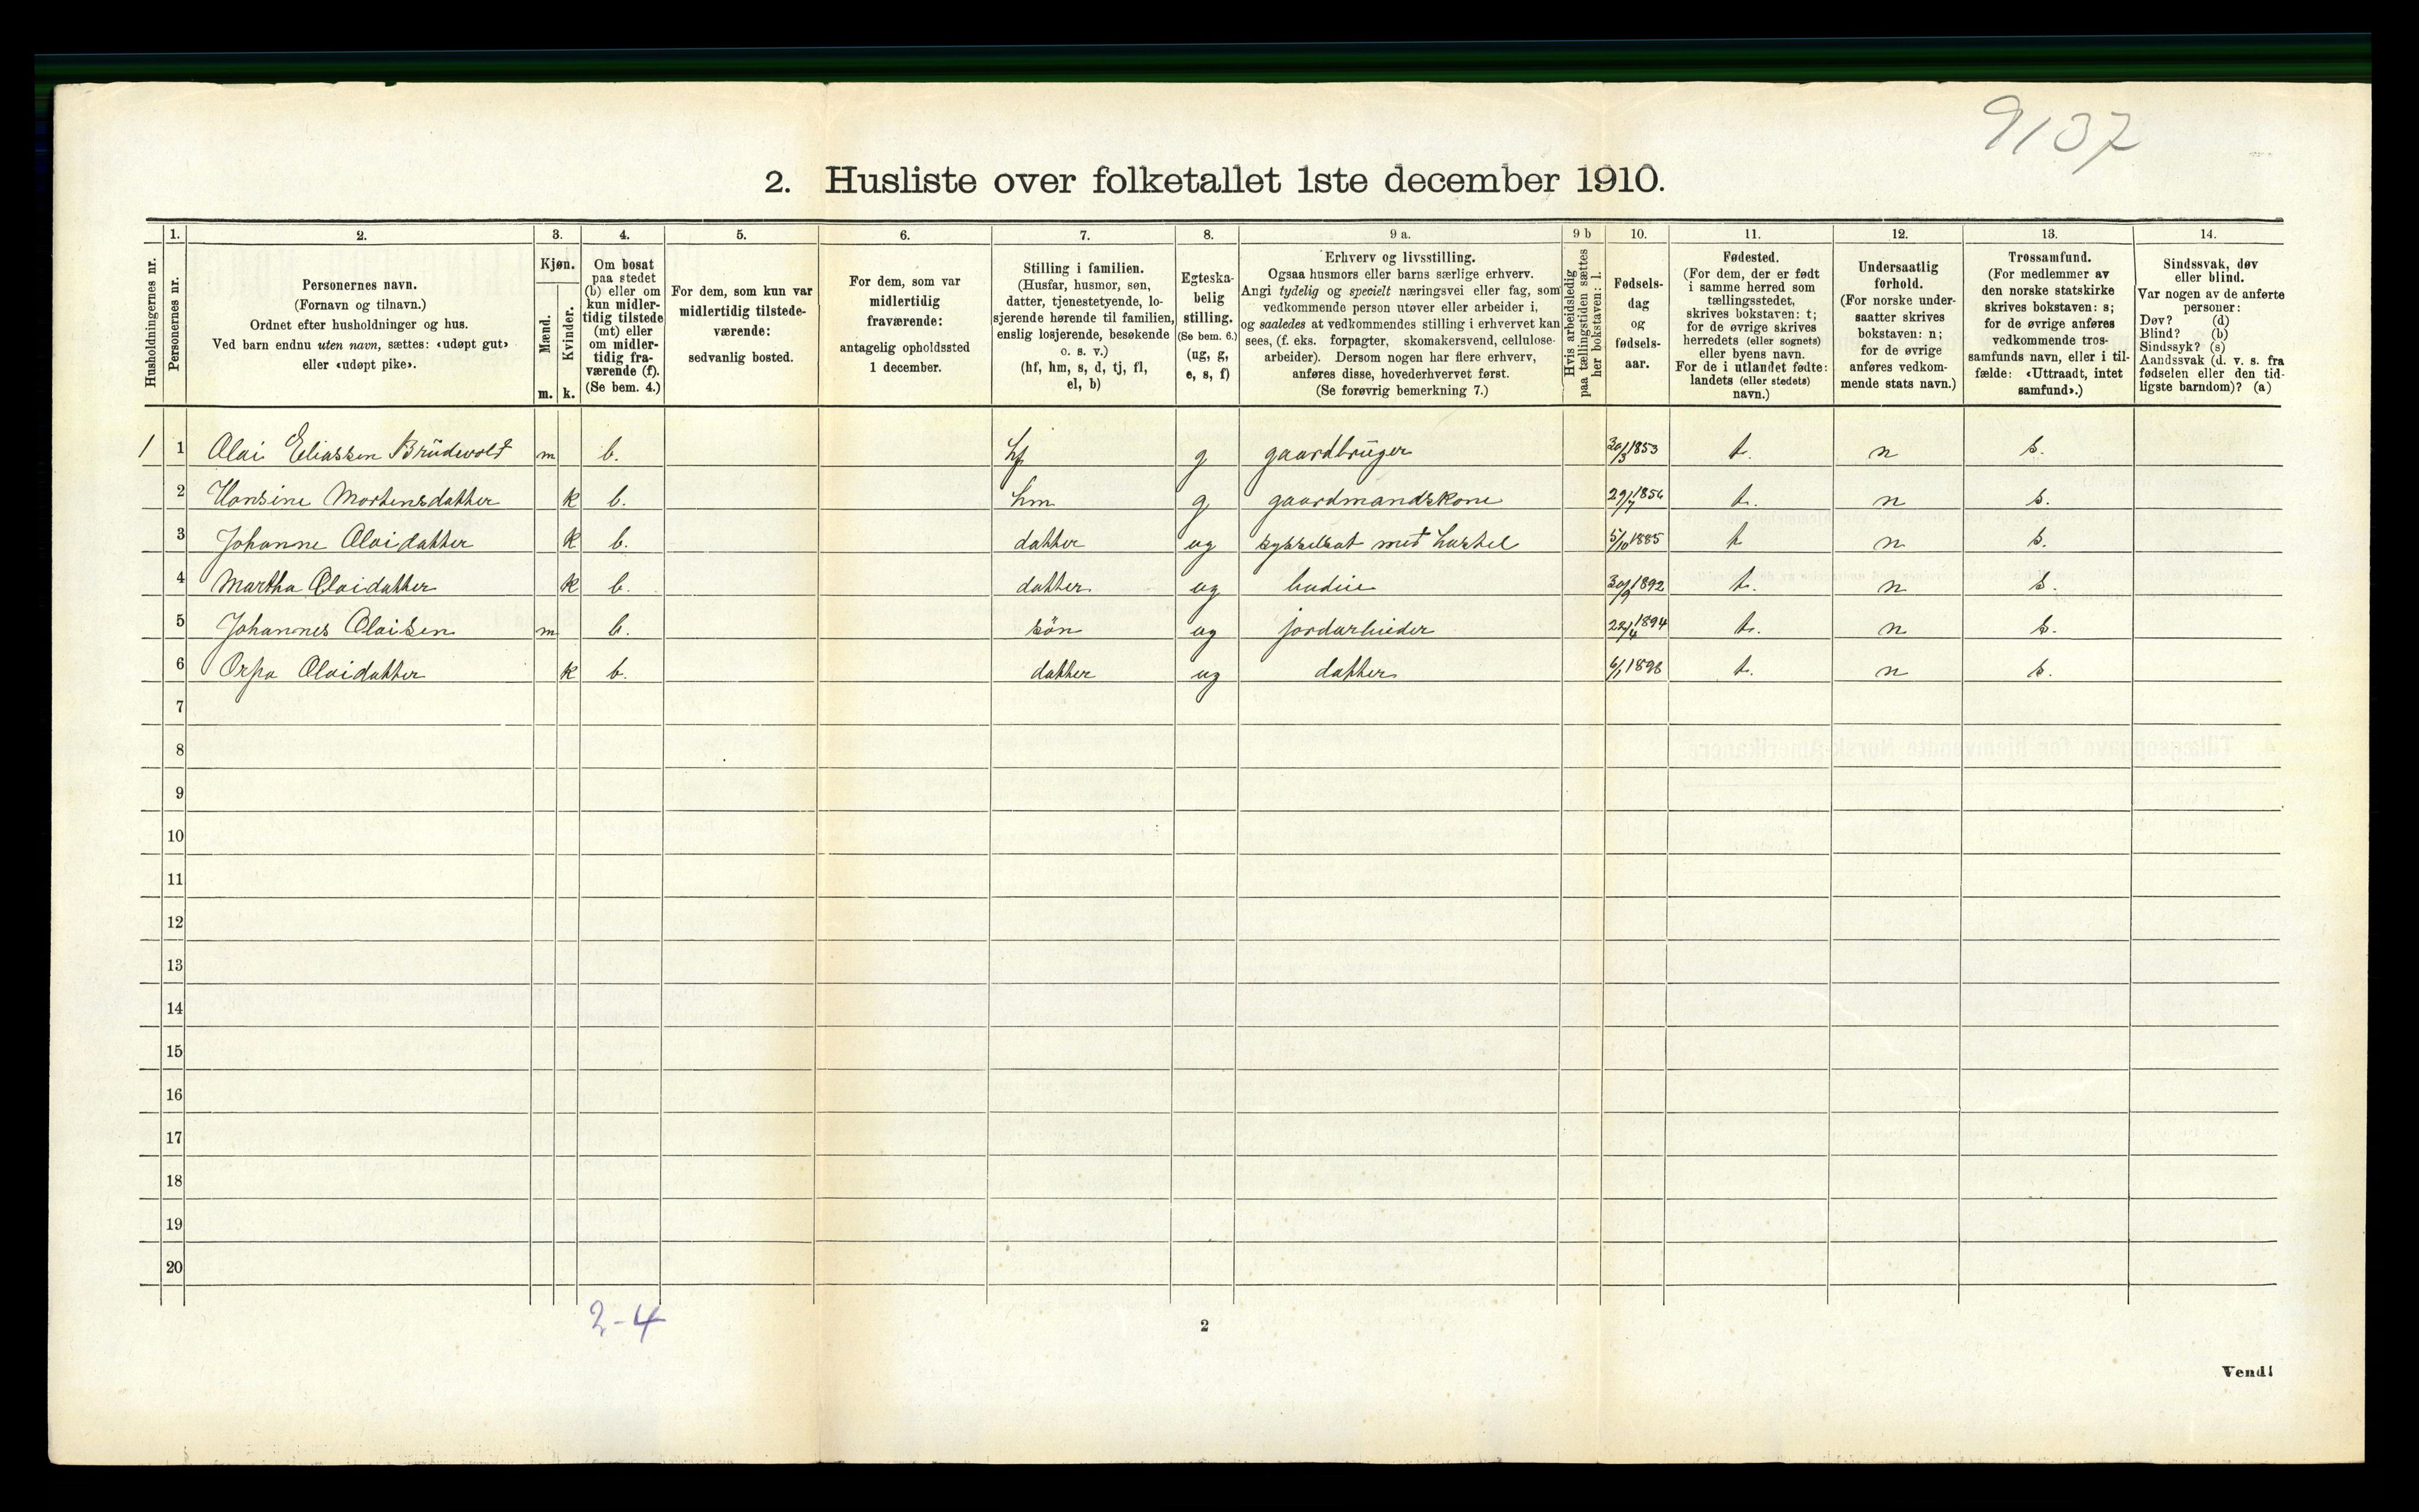 9137
2. Husliste over folketallet 1ste december 1910.
Husholdningernes nr.
1.
Personernes nr.
2.
Personernes navn.
(Fornavn og tilnavn.)
Ordnet efter husholdninger og hus.
Ved barn endnu uten navn, sættes: «udøpt gut»
eller «udøpt pike».
3.
Kjøn.
Mænd.
Kvinder.
m. k.
4.
Om bosat
paa stedet
(b) eller om
kun midler-
tidig tilstede
(mt) eller
om midler-
tidig fra-
værende (f).
(Se bem. 4.)
5.
For dem, som kun var
midlertidig tilstede-
værende:
sedvanlig bosted.
6.
For dem, som var
midlertidig
fraværende:
antagelig opholdssted
1 december.
7.
Stilling i familien.
(Husfar, husmor, søn,
datter, tjenestetyende, lo-
sjerende hørende til familien,
enslig losjerende, besøkende
o. s. v.)
(hf, hm, s, d, tj, fl,
el, b)
8.
Egteska-
belig
stilling.
(Se bem. 6.)
(ug, g,
e, s, f)
9 a.
Erhverv og livsstilling.
Ogsaa husmors eller barns særlige erhverv.
Angi tydelig og specielt næringsvei eller fag, som
vedkommende person utøver eller arbeider i,
og saaledes at vedkommendes stilling i erhvervet kan
sees, (f. eks. forpagter, skomakersvend, cellulose-
arbeider). Dersom nogen har flere erhverv,
anføres disse, hovederhvervet først.
(Se forøvrig bemerkning 7.)
9 b
Hvis arbeidsledig
paa tællingstiden sættes
her bokstaven: l.
10.
Fødsels-
dag
og
fødsels-
aar.
11.
Fødested.
(For dem, der er født
i samme herred som
tællingsstedet,
skrives bokstaven: t;
for de øvrige skrives
herredets (eller sognets)
eller byens navn.
For de i utlandet fødte:
landets (eller stedets)
navn.)
12.
Undersaatlig
forhold.
(For norske under-
saatter skrives
bokstaven: n;
for de øvrige
anføres vedkom-
mende stats navn.)
13.
Trossamfund.
(For medlemmer av
den norske statskirke
skrives bokstaven: s;
for de øvrige anføres
vedkommende tros-
samfunds navn, eller i til-
fælde: «Uttraadt, intet
samfund».)
14.
Sindssvak, døv
eller blind.
Var nogen av de anførte
personer:
Døv? (d)
Blind? (b)
Sindssyk? (s)
Aandssvak (d. v. s. fra
fødselen eller den tid-
ligste barndom)? (a)
1 1 Olai Eliassen Brüdevold m b. hf g gaardbrüger 30/3 1853 t. n s.
2 Hansine Mortensdatter k b. hm g gaardmandskone 29/7 1856 t. n s.
3 Johanne Olaidatter k b. datter ug sysselsat med husstel 5/10 1885 t n s.
4 Martha Olaidatter k b. datter ug budeie 30/9 1892 t. n s.
5 Johannes Olaisen m b. søn ug jordarbeider 22/4 1894 t. n s.
6 Orpa Olaidatter k b. datter ug datter 6/1 1898 t. n s.
7
8
9
10
11
12
13
14
15
16
17
18
19
20
2-4
2
Vend!